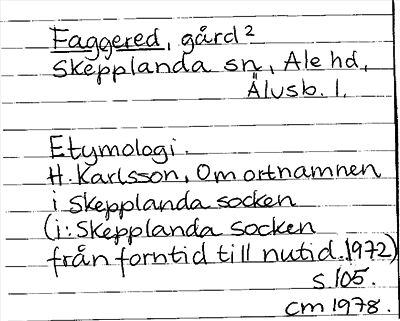 Faggered, gård²
Skepplanda sn, Ale hd,
Älvsb. l.
Etymologi.
H. Karlsson, Om ortnamnen
i Skepplanda socken
(i: Skepplanda socken
från forntid till nutid. 1972)
s. 105.
cm 1978.